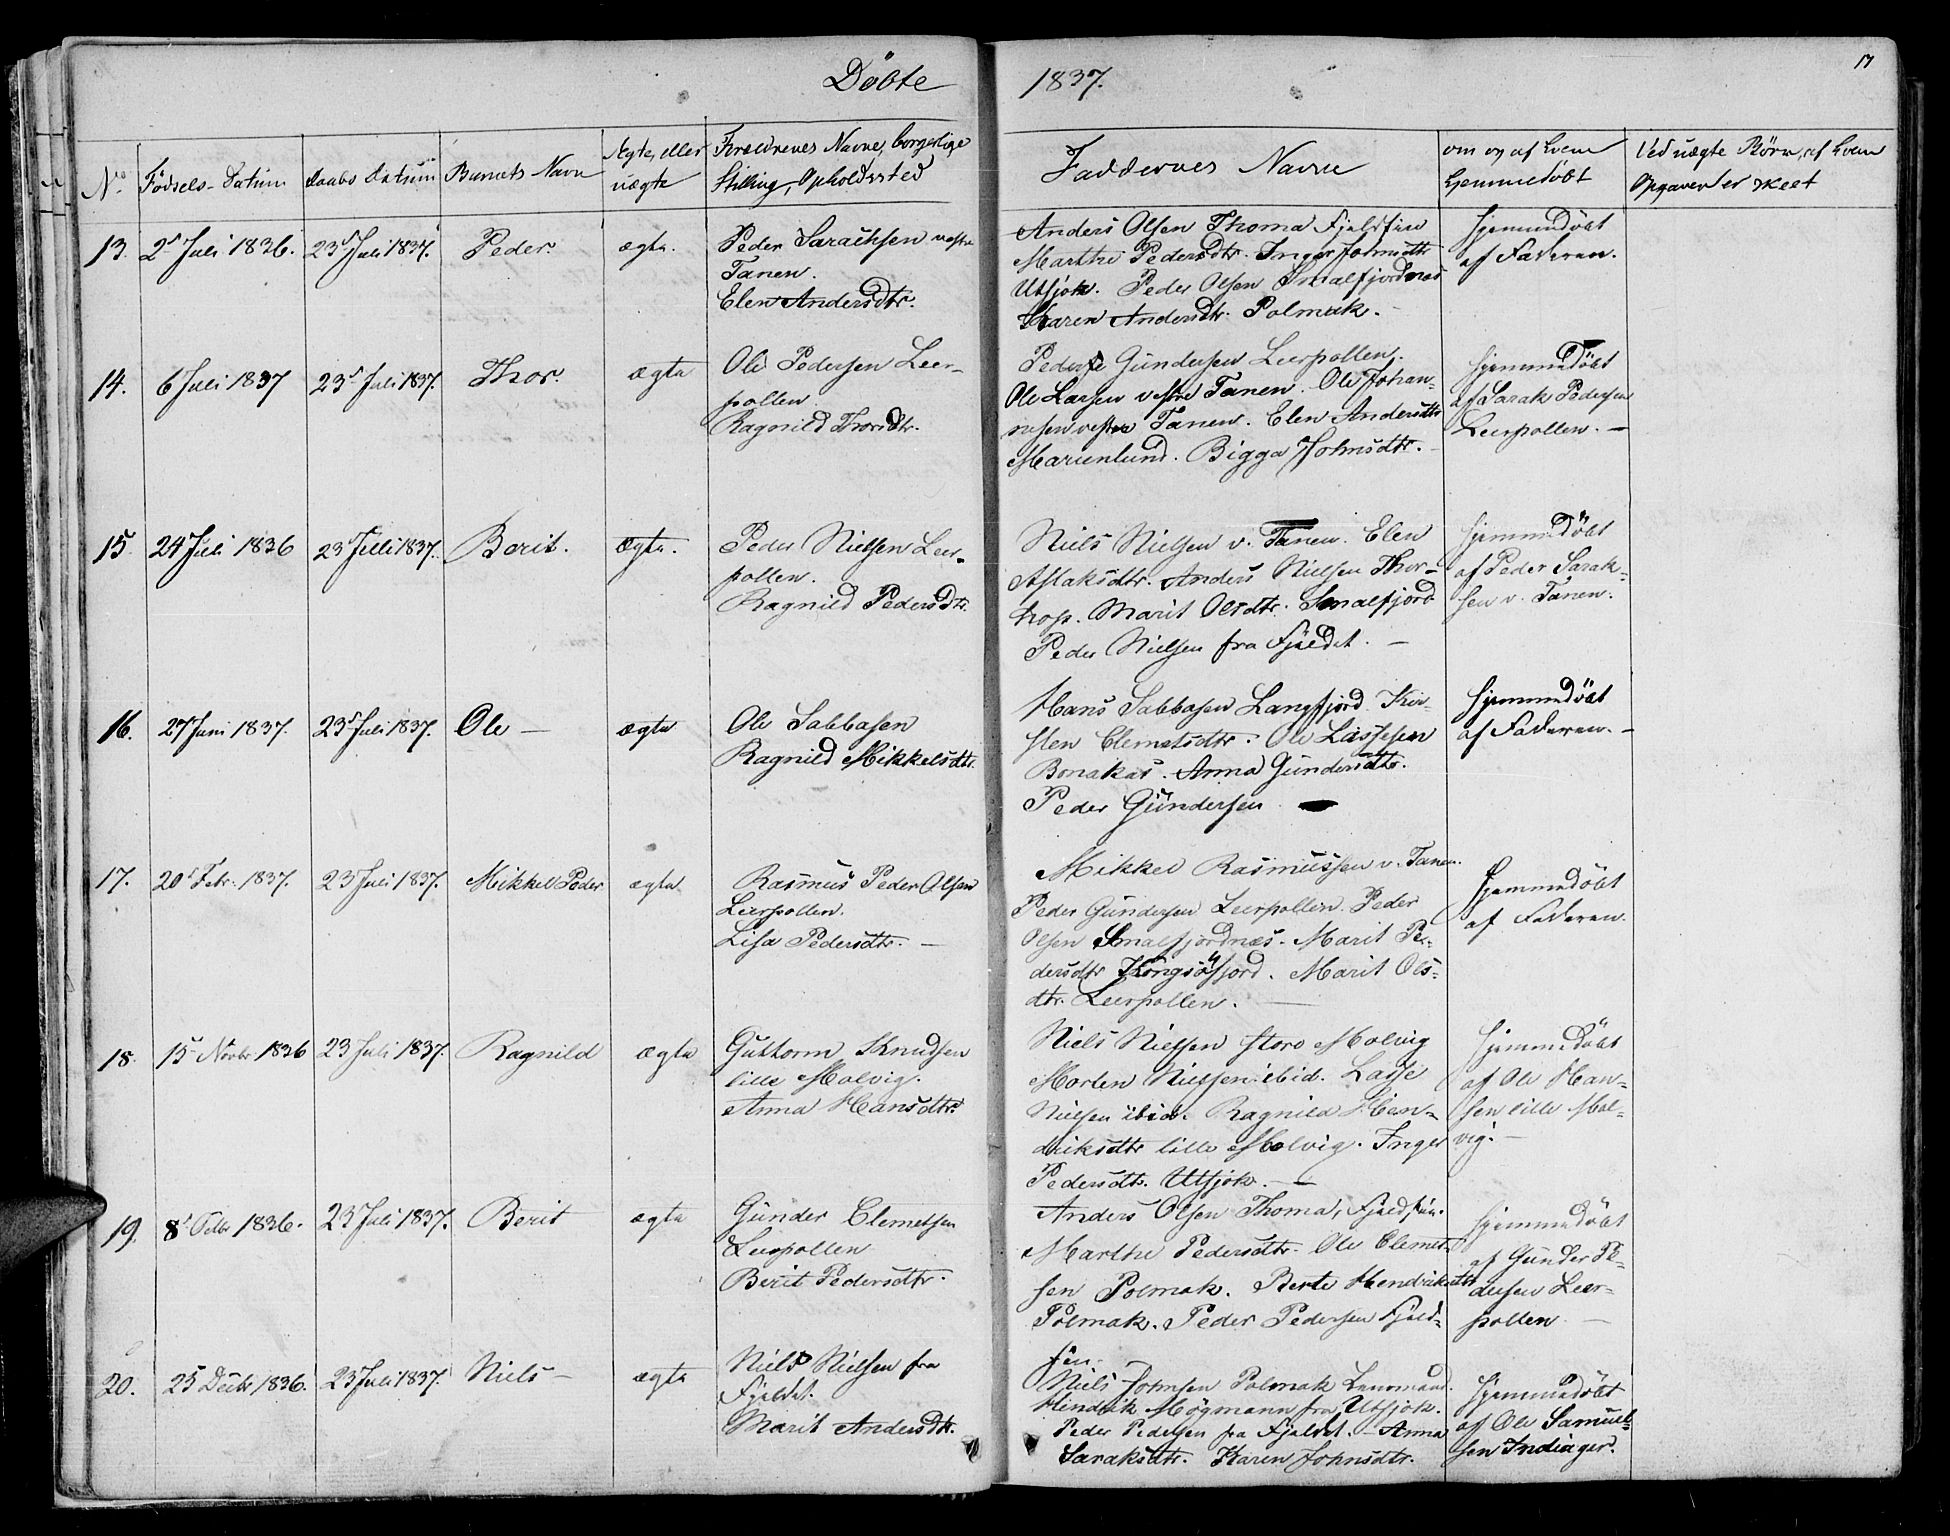 Döbte 1837. 17
No. Födsels-Datum Daabs Datum Barnets Navn Ægte, eller uægte Forældrenes Navne, borgerlige Stilling, Opholdssted Faddernes Navne om og af hvem hjemmedøbt Ved uægte Børn, af hvem Opgaven er skeet
13. 2d Juli 1836. 23d Juli 1837. Peder. ægte. Peder Sarachsen vestre
Tanen.
Elen Andersdtr.
Anders Olsen Thoma Fjeldfin
Marthe Pedersdtr. Inger Johnsdtr
Utsjok. Peder Olsen Smalfjordnæs
Karen Andersdtr. Polmak.
Hjemmedöbt
af Faderen.
14. 6 Juli 1837 23d Juli 1837. Thor. ægte Ole Pedersen Leer-
pollen.
Ragnild Thorsdtr.
Peder Gundersen Leerpollen.
Ole Larsen vestre Tanen. Ole Johan-
nesen vestre Tanen. Elen Andersdtr
Marienlund. Bigga Johnsdtr.
Hjemmedöbt
af Sarak Pedersen
Leerpollen. —
15. 24 Juli 1836 23d Julli 1837. Berit. Ægte. Peder Nielsen Leer-
pollen.
Ragnild Pedersdtr.
Niels Nielsen v. Tanen. Elen
Aslaksdtr. Anders Nielsen Thor-
hop. Marit Olsdtr. Smalfjord
Peder Nielsen fra Fjeldet. —
Hjemmedöbt
af Peder Sarak-
sen v. Tanen.
16. 27 Juni 1837. 23d Juli 1837. Ole — ægte Ole Sabbasen
Ragnild Mikkelsdtr.
Hans Sabbasen Langfjord. Kir-
sten Clemetsdtr. Ole Lassesen
Bonakas. Anna Gundersdtr.
Peder Gundersen
Hjemmedöbt
af Faderen. —
17. 20d Febr. 1837. 23 Juli 1837. Mikkel Peder ægte Rasmus Peder Olsen
Leerpollen.
Lisa Pedersdtr. —
Mikkel Rasmussen v. Tanen.
Peder Gundersen Leerpollen. Peder
Olsen Smalfjordnæs. Marit Pe-
dersdtr Kongsöfjord. Marit Ols-
dtr. Leerpollen. —
Hjemmedöbt
af Faderen.
18. 15d Novbr 1836 23 Juli 1837. Ragnild ægte Guttorm Knudsen
lille Molvig.
Anna Hansdtr.
Niels Nielsen store Molvig
Morten Nielsen ibid. Lasse
Nielsen ibid. Ragnild Hen-
driksdtr lille Molvig. Inger
Pedersdtr. Utsjok. —
Hjemmedöbt
af Ole Han-
sen lille Mol-
vig. —
19. 8d 1836. 23 Juli 1837. Berit ægte Gunder Clemetsen
Leerpollen
Berit Pedersdtr.
Anders Olsen Thoma, Fjeldfin.
Marthe Pedersdtr. Ole Clemet-
sen Polmak. Berte Hendriksdtr
Polmak. Peder Pedersen Fjeld-
fin.
Hjemmedöbt
af Gunder Pe-
dersen Leer-
pollen —
20. 25 Decbr 1836. 23 Juli 1837. Niels — ægte Niels Nielsen fra
Fjeldet.
Marit Andersdtr.
Niels Johnsen Polmak Lensmand.
Hendrik Högmann fra Utsjok.
Peder Pedersen fra Fjeldet. — Anna
Saraksdtr. Karen Johnsdtr.
Hjemmedöbt
af Ole Samuel-
sen Indiager.